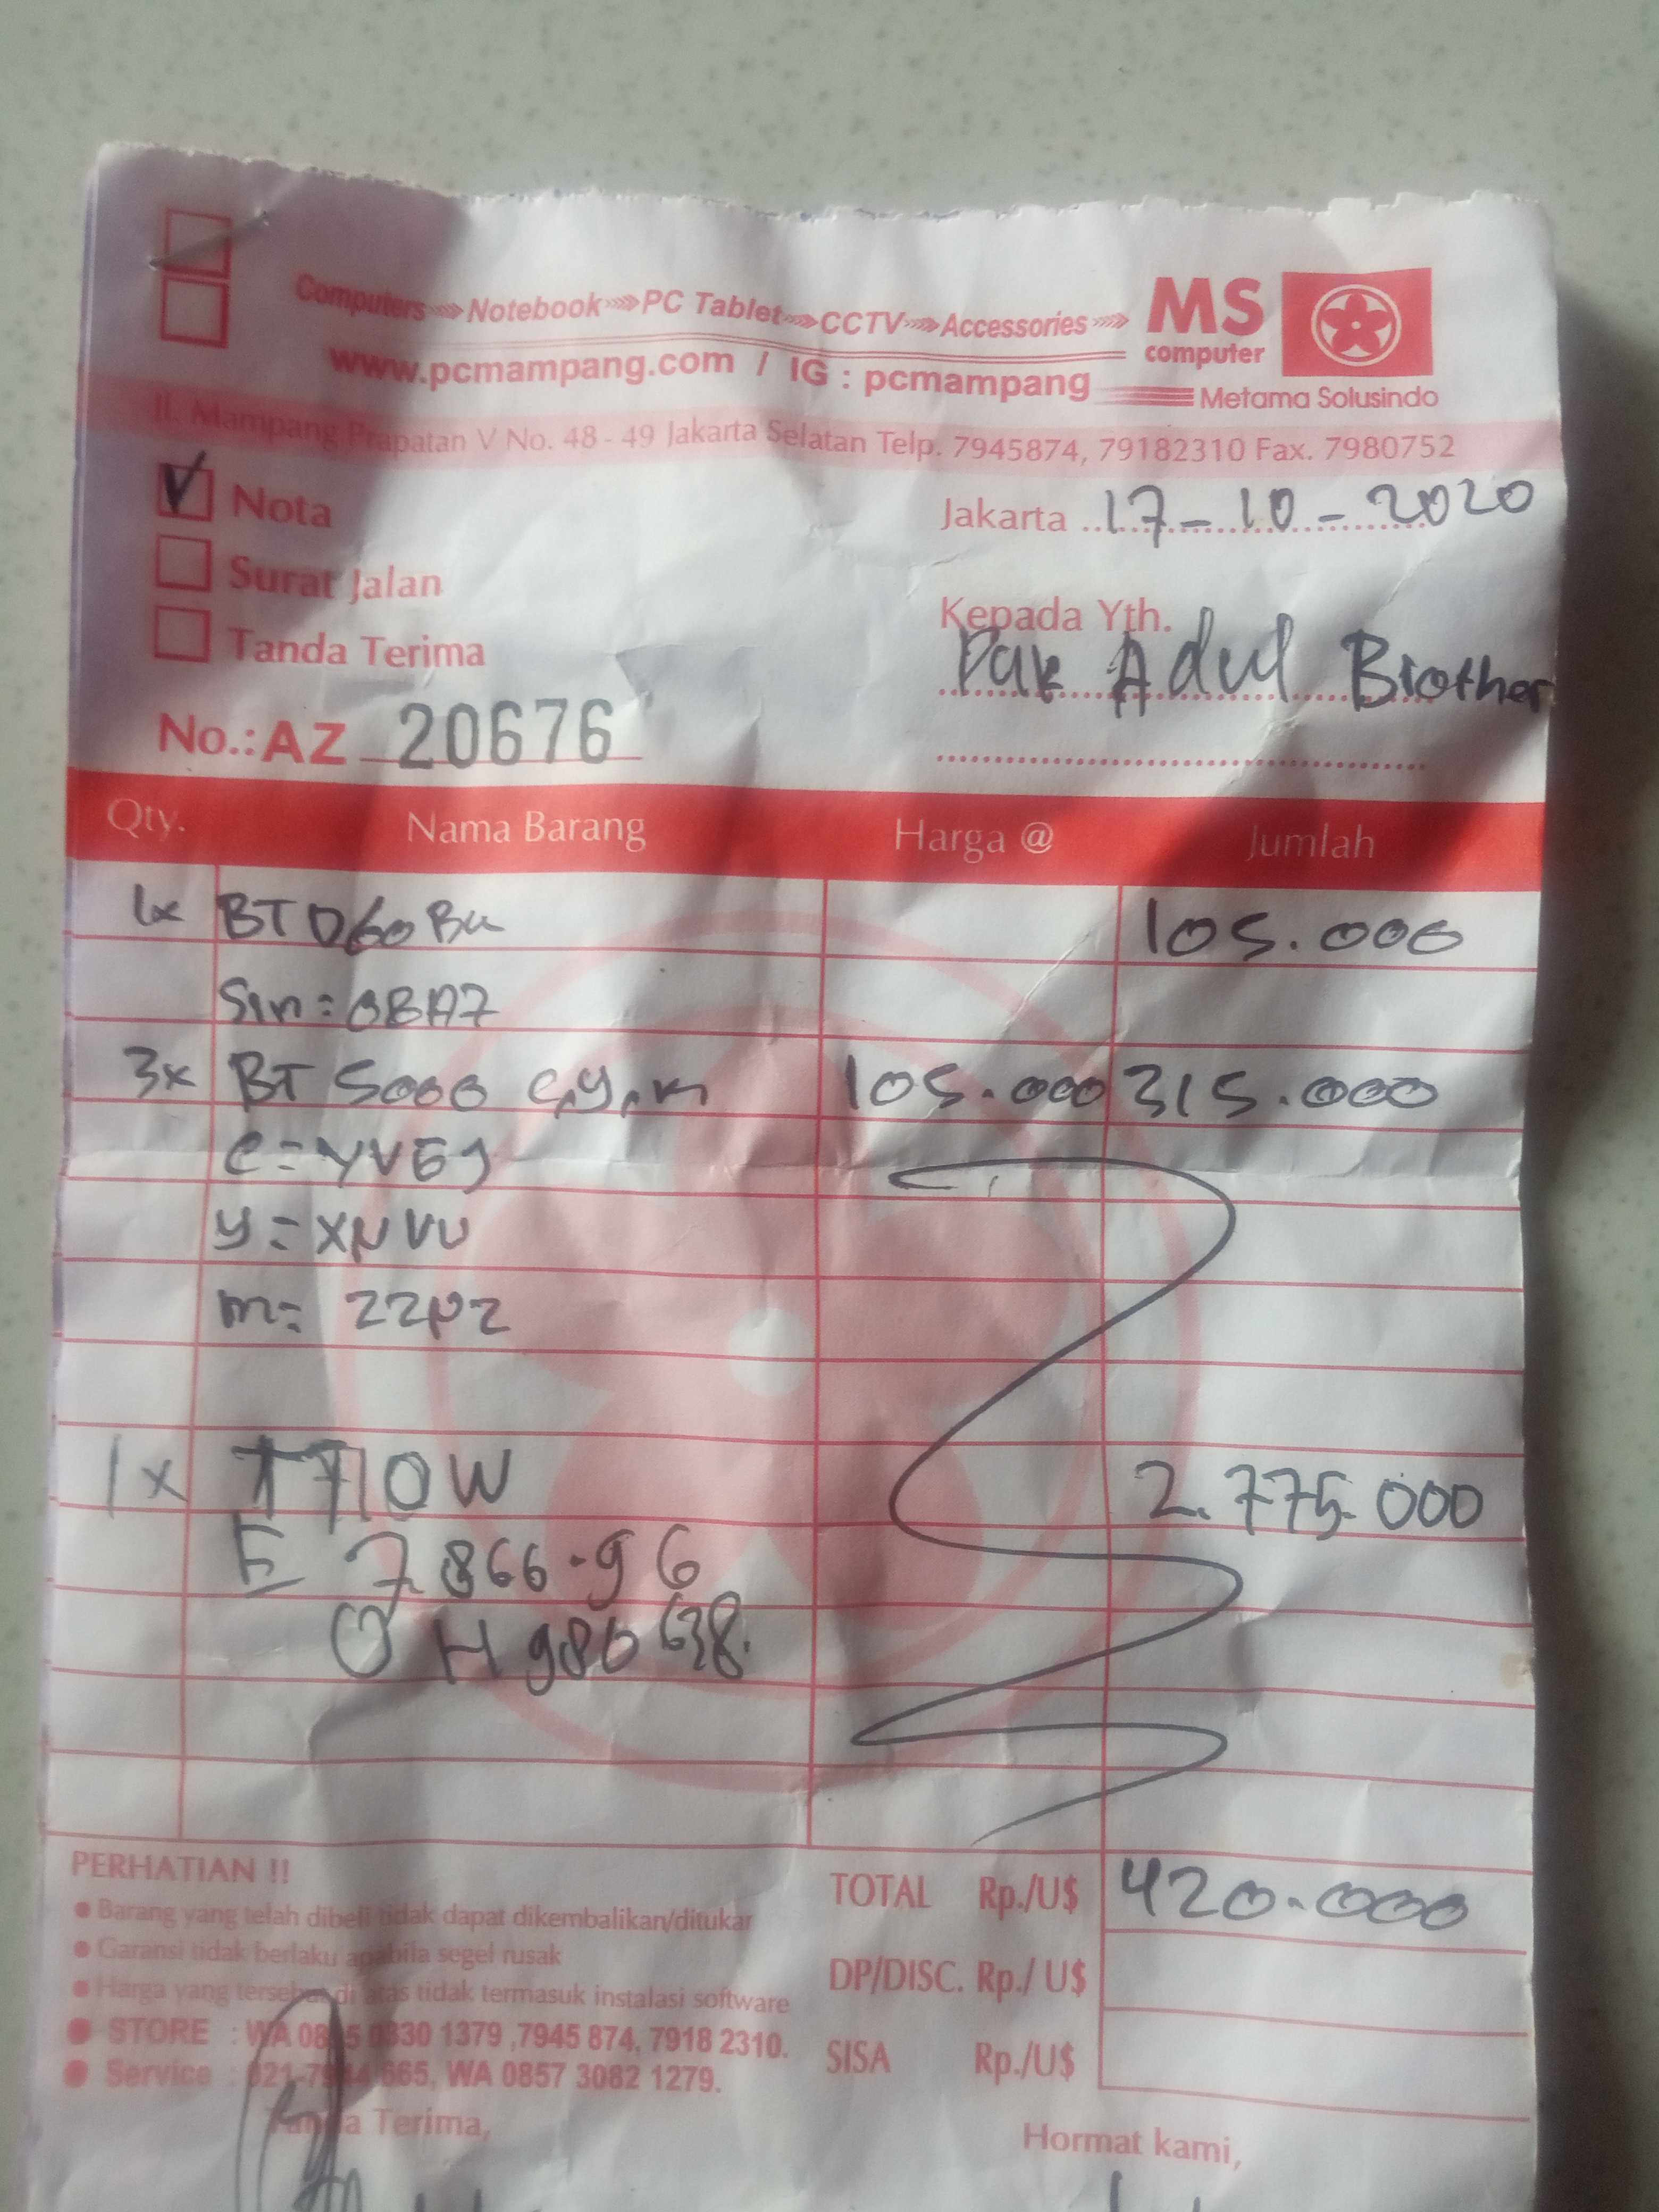 Computers Notebook PC Tablet CCTV Accessories
MS
computer
www.pcmampang.com / IG : pcmampang
Metama Solusindo
Jl. Mampang Prapatan V No. 48 - 49 Jakarta Selatan Telp. 7945874, 79182310 Fax. 7980752
Nota
Jakarta 17-10-2020
Surat Jalan
Kepada Yth.
Tanda Terima
Pak Adul Brother
No.: AZ 20676
Qty. Nama Barang Harga @ Jumlah
1x BT D60 BK 105.000
3x BT 5000 C,Y,M 105.000 315.000
m= 22P2
1x T710W 2.775.000
E 7 866.96
0 H 980638.
PERHATIAN !!
Barang yang telah dibeli tidak dapat dikembalikan/ditukar
Garansi tidak berlaku apabila segel rusak
Harga yang tersebut di atas tidak termasuk instalasi software
STORE : WA 330 1379 ,7945 874, 7918 2310.
Service : WA 0857 3082 1279.
TOTAL Rp./U$ 420.000
DP/DISC. Rp./ U$
SISA Rp./U$
Tanda Terima,
Hormat kami,